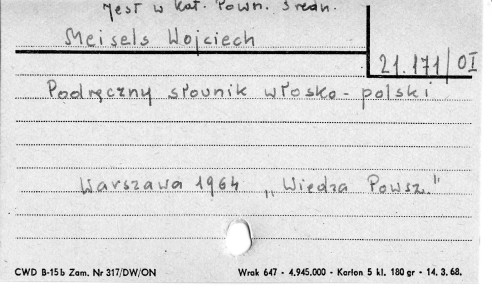 Jest w kat. Pown. średn.
Meisels Wojciech
21.171/OI
Podręczny słownik włosko-polski
Warszawa 1964 „Wiedza Powsz."
CWD B-15b Zam. Nr 317/DW/ON Wrak 647 - 4.945.000 - Karton 5 kl. 180 gr - 14. 3. 68.